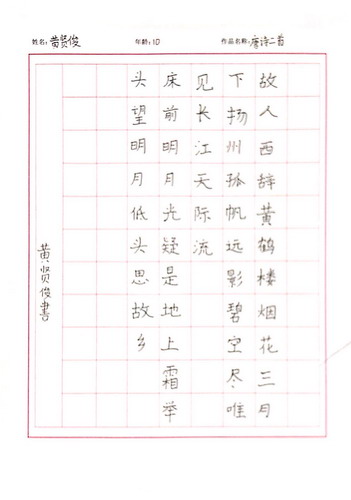 姓名: 黄贤俊 年龄: 10 作品名称: 唐诗二首
故人西辞黄鹤楼烟花三月
下扬州孤帆远影碧空尽唯
见长江天际流
床前明月光疑是地上霜举
头望明月低头思故乡
黄贤俊書